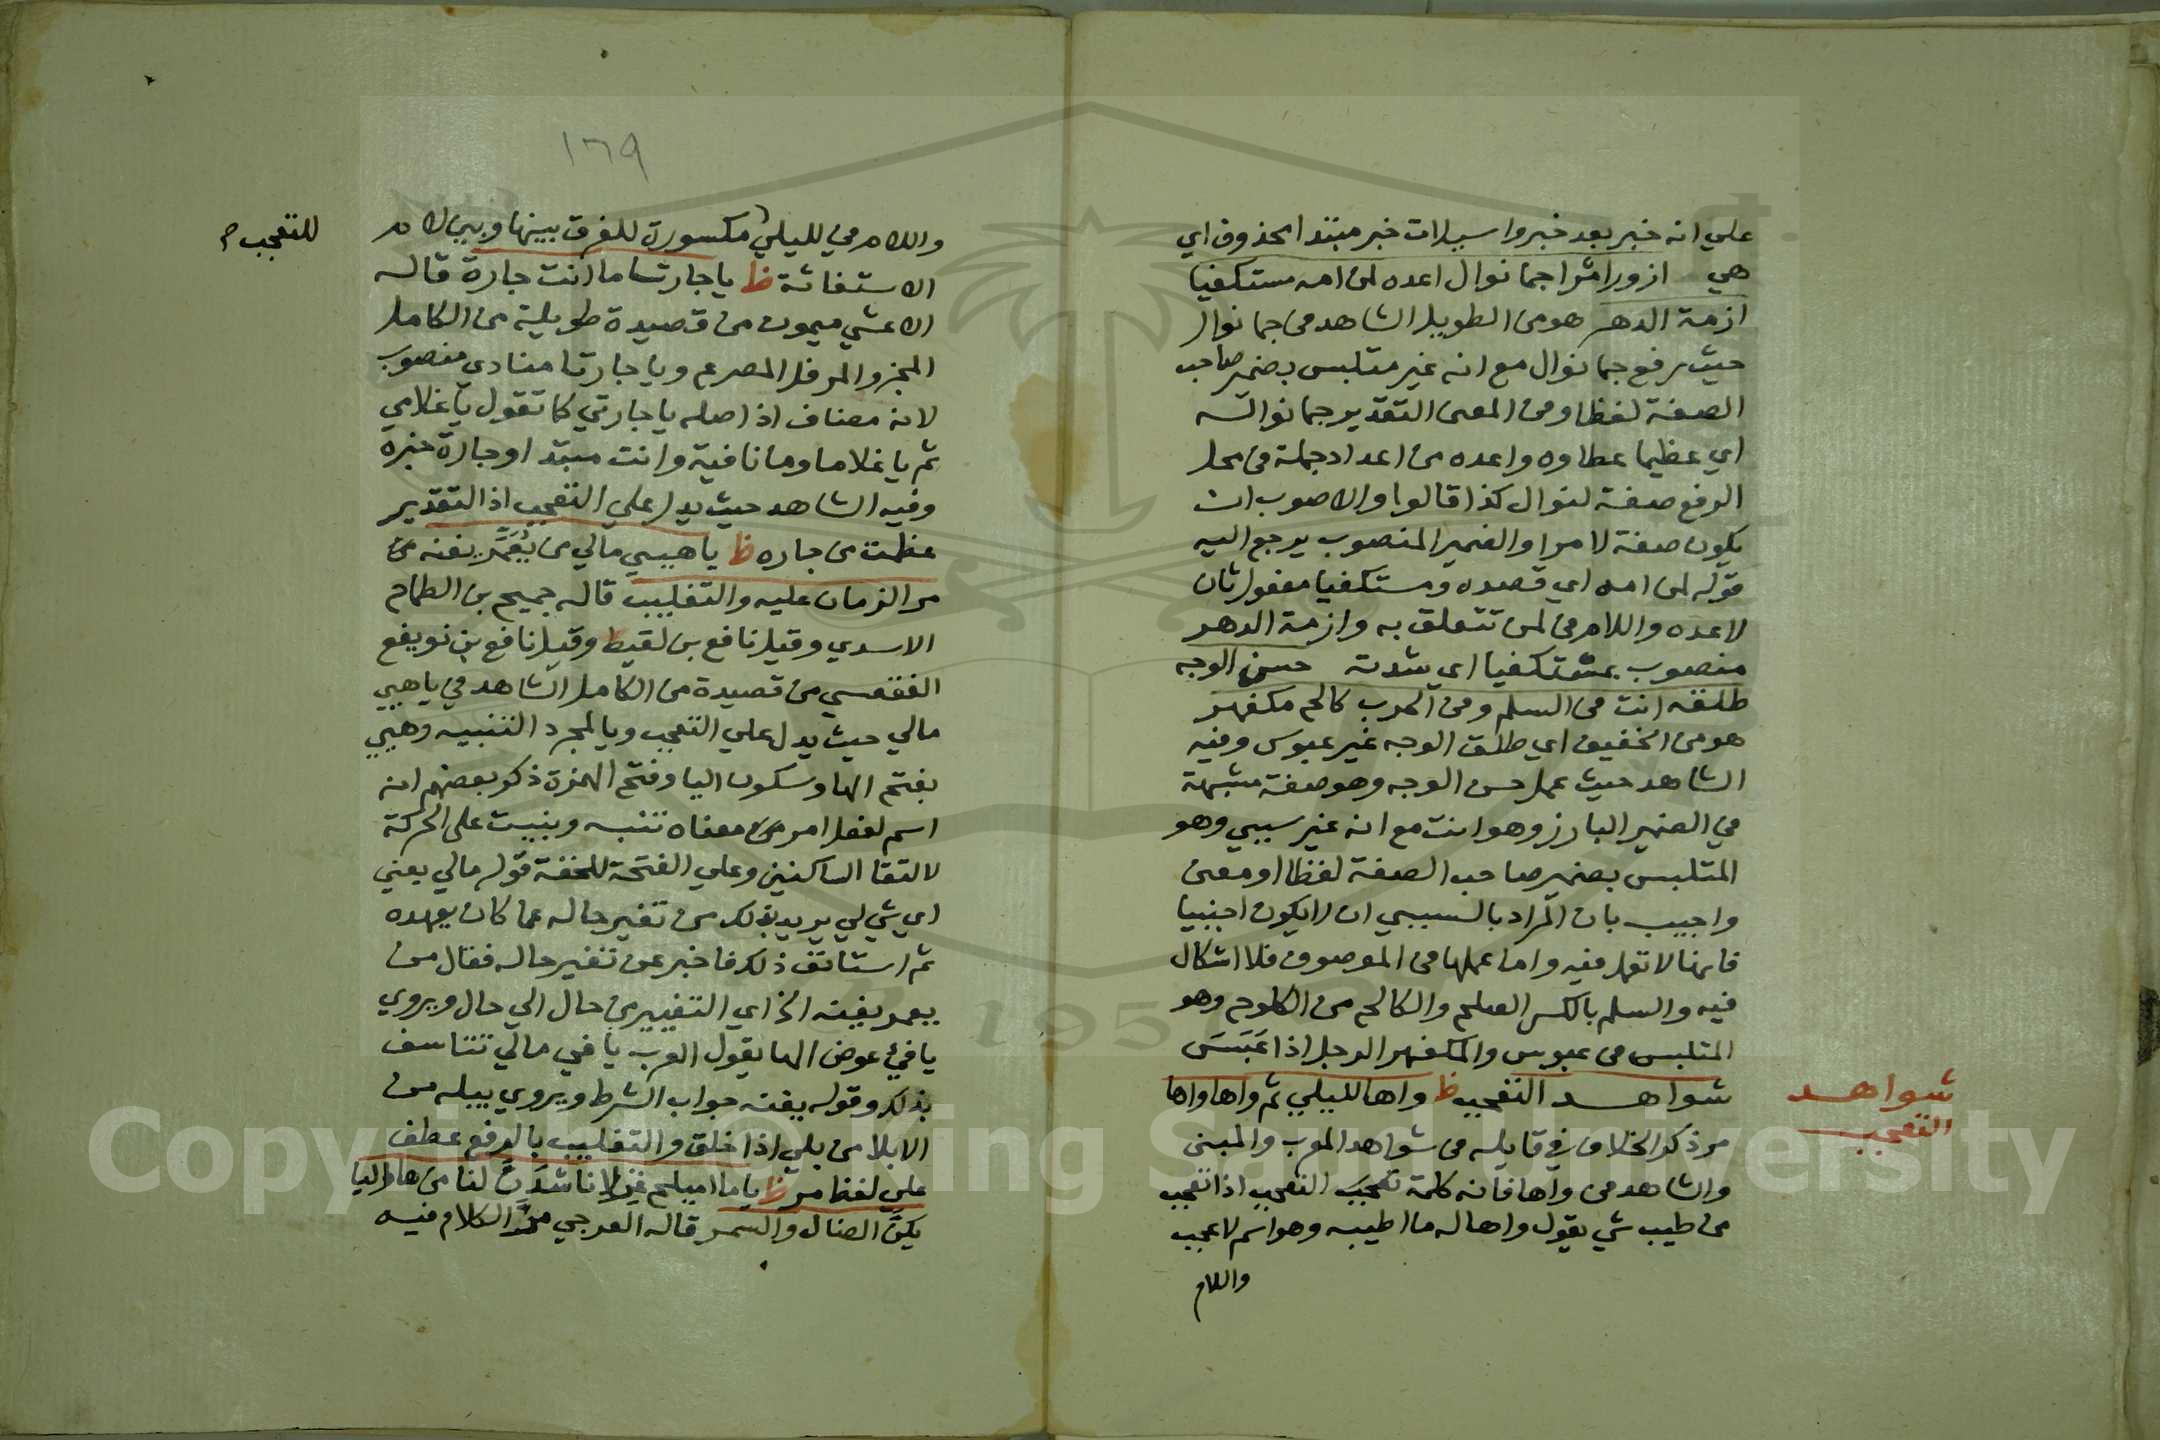 علي انه خبر بعد خبر واسيلات خبر مبتدا محذوف اي
هي ازور امرا جما نوال اعده لمن امه مستكفيا
ازمة الدهر هو من الطويل الشاهد في جما نوال
حيث رفع جما نوال مع انه غير متلبس بضمير صاحب
الصفة لفظا وفي المعنى التقدير جما نواله
اي عظيما عطاوه واعده من اعداد جملة في محل
الرفع صفة لنوال كذا قالوا والاصوب ان
يكون صفة لامرا والضمير المنصوب يرجع اليه
قوله لمن امه اي قصده ومستكفيا مفعول ثان
لاعده واللام في لمن تتعلق به وازمة الدهر
منصوب بمستكفيا اي شدته حسن الوجه
طلقه انت في السلم وفي الحرب كالح مكفهر
هو من الخفيف اي طلق الوجه غير عبوس وفيه
الشاهد حيث عمل حسن الوجه وهو صفة مشبهة
في الضمير البارز وهو انت مع انه غير سببي وهو
المتلبس بضمير صاحب الصفة لفظا او معنى
واجيب بان المراد بالسببي ان لا يكون اجنبيا
فانها لا تعمل فيه واما عملها في الموصوف فلا اشكال
فيه والسلم بالكسر الصلح والكالح من الكلوح وهو
المتلبس في عبوس والمكفهر الرجل اذا عَبَسَ
شواهد التعجب ظ واها لليلي ثم واها واها
مر ذكر الخلاف في قايله في شواهد المعرب والمبنى
والشاهد في واها فانه كلمة تعجب التعجب اذا تعجب
من طيب شي يقول واها له ما اطيبه وهو اسم لاعجب
واللام
شواهد
التعجب
١٦٩
واللام في لليلي مكسورة للفرق بينها وبين لام
للتعجب م
الاستغاثة ظ يا جارتا ما انت جارة قاله
الاعشي ميمون من قصيدة طويلة من الكامل
المجزو المرفل المصرع ويا جارتا منادي منصوب
لانه مضاف اذ اصله يا جارتي كما تقول يا غلامي
ثم يا غلاما وما نافية وانت مبتدا وجارة خبره
وفيه الشاهد حيث يدل علي التعجب اذ التقدير
عظمت من جاره ظ يا هيي مالي من يُعَمَّر يفنه من
مر الزمان عليه والتقليب قاله جميح بن الطماح
الاسدي وقيل نافع بن لقيط وقيل نافع بن نويفع
الفقعسي من قصيدة من الكامل الشاهد في يا هيي
مالي حيث يدل علي التعجب ويا لمجرد التنبيه وهيي
بفتح الها وسكون اليا وفتح الهمزة ذكر بعضهم انه
اسم لفعل امر من معناه تنبه وبنيت على الحركة
لالتقا الساكنين وعلي الفتحة للخفة قوله مالي يعني
اي شي لي يريد بذلك من تغير حاله عما كان يعهده
ثم استانف ذلك فاخبر عن تغير حاله فقال من
يعمر يفنه الخ اي التغيير من حال الي حال ويروي
يا في عوض الها يقول العرب يا في مالي تتاسف
بذلك وقوله يفنه جواب الشرط ويروي يبله من
الابلا من بلي اذا خلق والتقليب بالرفع عطف
علي لفظ مر ظ ياما اميلح غزلانا شَدَنَّ لنا من هاوليا
يكنّ الضال والسمر قاله العرجي مرّ الكلام فيه